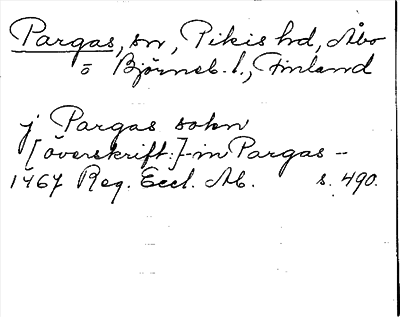 Pargas, sn, Pikis hd, Åbo
o Björneb. l., Finland
j Pargas sokn
[överskrift:] - in Pargas -
1467 Reg. Eccl. Ab. s. 490.